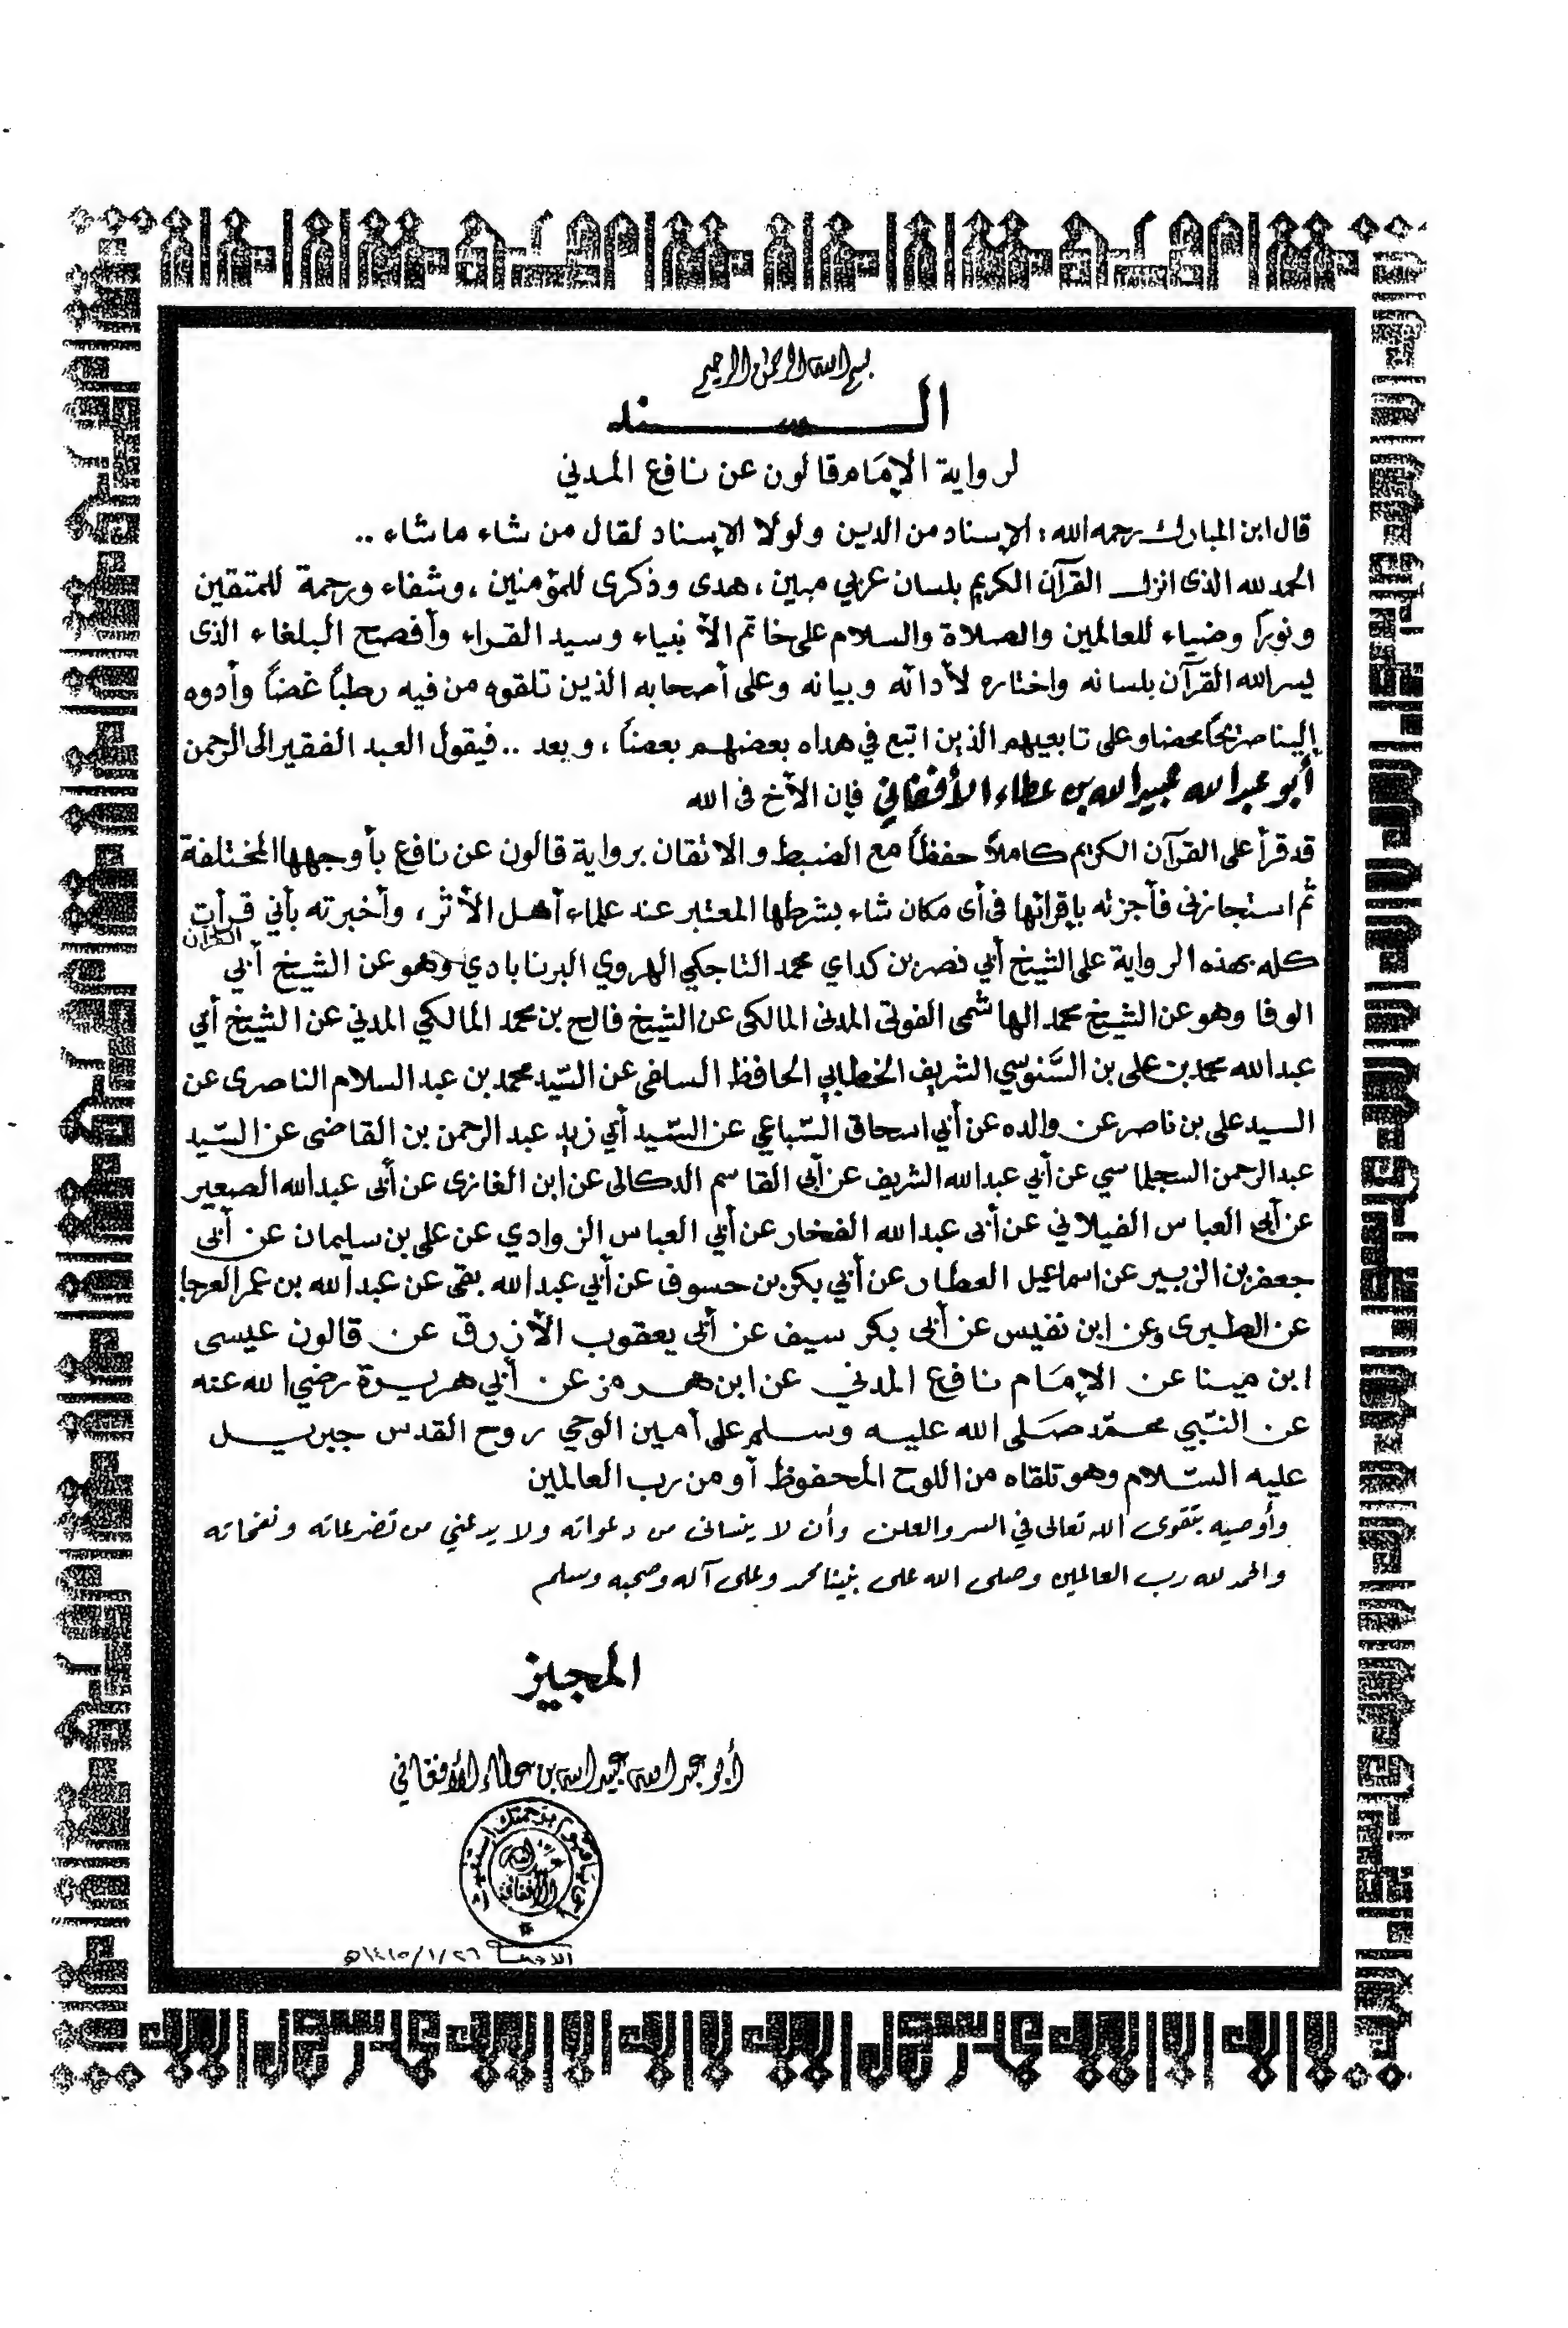 بسم الله الرحمن الرحيم
الـسـند
لرواية الإمَام قالون عن نافع المدني
قال ابن المبارك رحمه الله : الإسناد من الدين ولولا الإسناد لقال من شاء ما شاء ..
الحمد لله الذى انزل القرآن الكريم بلسان عربي مبين ، هدى وذكرى للمؤمنين ، وشفاء ورحمة للمتقين
ونورًا وضياء للعالمين والصلاة والسلام على خاتم الأنبياء وسيد القراء وأفصح البلغاء الذى
يسر الله القرآن بلسانه واختاره لأدائه وبيانه وعلى أصحابه الذين تلقوه من فيه رطباً غضاً وأدوه
إلينا صريحاً محضا وعلى تابعيهم الذين اتبع في هداه بعضهم بعضاً ، وبعد .. فيقول العبد الفقير الى الرحمن
أبو عبد الله عبيد الله بن عطاء الأفغاني فإن الأخ فى الله
قد قرأ على القرآن الكريم كاملاً حفظاً مع الضبط والاتقان برواية قالون عن نافع بأوجهها المختلفة
ثم استجازنى فأجزته بإقرائها فى أى مكان شاء بشرطها المعتبر عند علماء أهل الأثر ، وأخبرته بأني قرأت القرآن
كله بهذه الرواية على الشيخ أبي نصر بن كداي محمد التاجكي الهروي البرنابادي وهو عن الشيخ أبي
الوفا وهو عن الشيخ محمد الهاشمى الفوتى المدنى المالكى عن الشيخ فالح بن محمد المالكي المدني عن الشيخ أبي
عبد الله محمد بن على بن السَّنوسي الشريف الخطابي الحافظ السافى عن السّيد محمد بن عبد السلام الناصرى عن
السيد على بن ناصر عن والده عن أبي اسحاق السّباعي عن السّيد أبي زيد عبد الرحمن بن القاضى عن السّيد
عبد الرحمن السجلماسي عن أبي عبد الله الشريف عن أبى القاسم الدكالى عن ابن الغازى عن أبى عبد الله الصغير
عن أبى العباس الفيلاني عن أبى عبد الله الفخار عن أبي العباس الزوادي عن على بن سليمان عن أبى
جعفر بن الزبير عن اسماعيل العطار عن أبي بكر بن حسوف عن أبي عبد الله بقى عن عبد الله بن عمر العرجا
عن الطبرى وعن ابن نفيس عن أبى بكر سيف عن أبى يعقوب الأزرق عن قالون عيسى
ابن مينا عن الإمَام نافع المدني عن ابن هرمز عن أبي هريرة رضي الله عنه
عن النّبي محمّد صَلى الله عليه وسلم على أمين الوحي روح القدس جبريل
عليه السّلام وهو تلقاه من اللوح المحفوظ أو من رب العالمين
وأوصيه بتقوى الله تعالى في السر والعلن وأن لا ينسانى من دعواته ولا يدعني من تضرعاته ونفحاته
والحمد لله رب العالمين وصلى الله على نبينا محمد وعلى آله وصحبه وسلم
المجيز
أبو عبد الله عبيد الله بن عطاء الأفغاني
برحمتك استغيث
الأفغاني
٢٦/١/١٤١٥ه